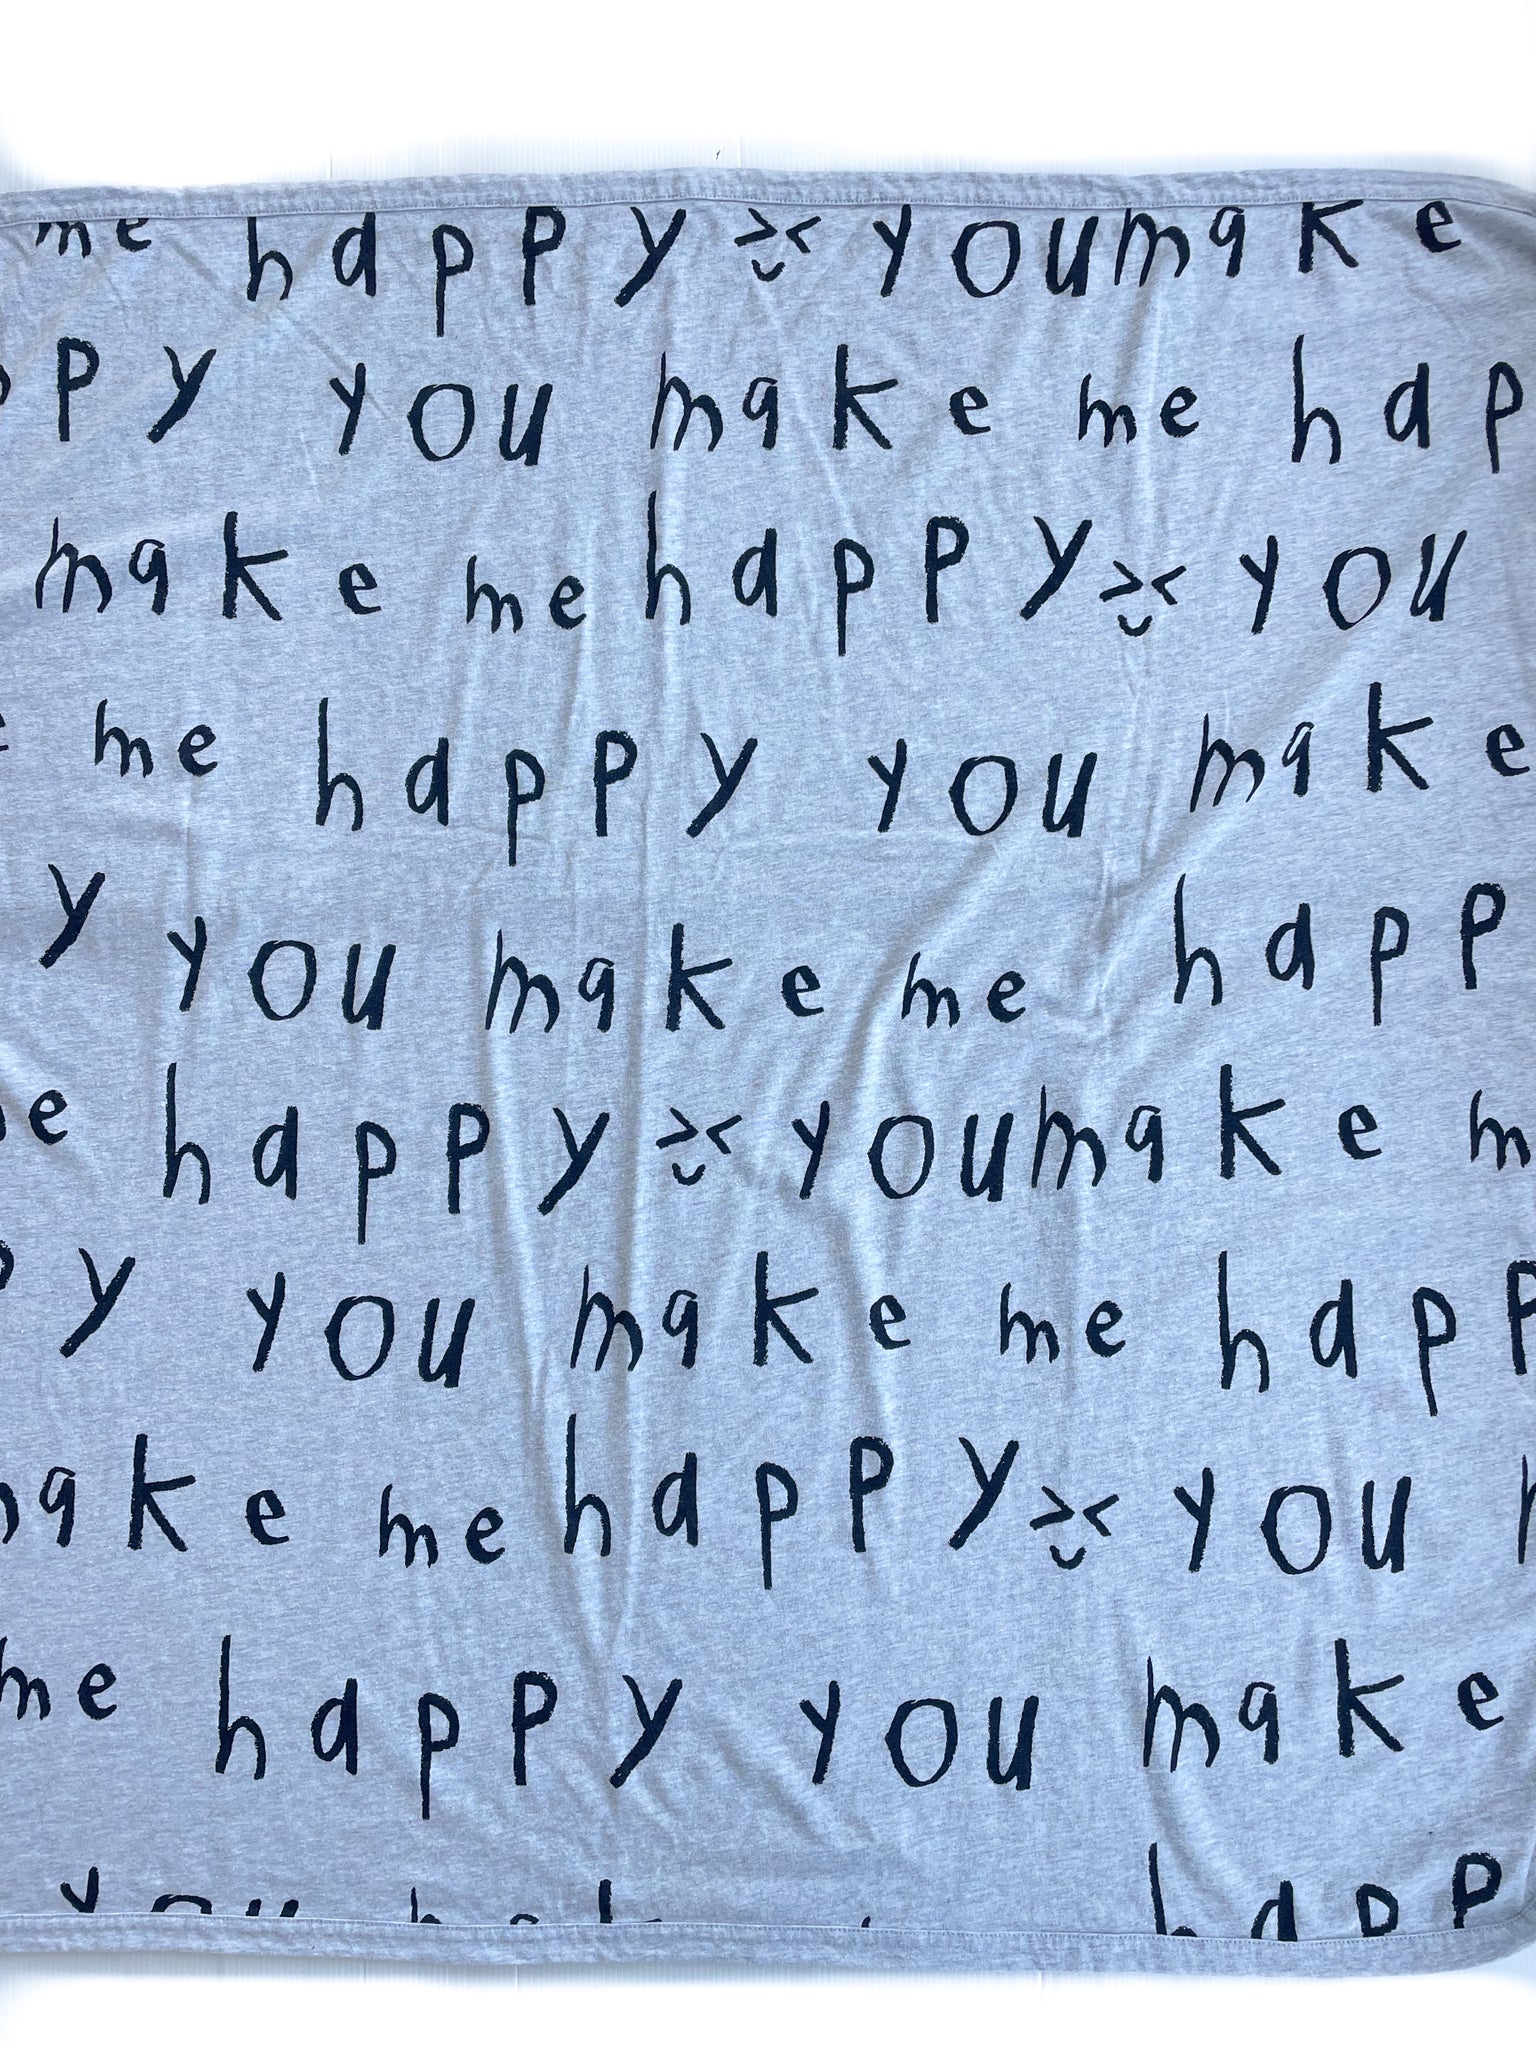 me happy >< you make
ppy you make me hap
make me happy >< you
me happy you make
y you make me happ
e happy >< you make m
py you make me happ
make me happy >< you
me happy you make
you make happ